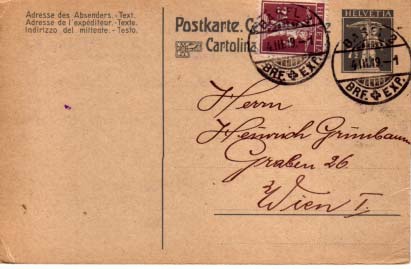 Adresse des Absenders. - Text.
Adresse de l'expéditeur. - Texte.
Indirizzo del mittente. - Testo.
Postkarte.
Cartolina
HELVETIA
BRF. EXP.
4.III.19.-1
BRF. EXP.
Herrn
Heinrich Grünbaum
Graben 26
Wien I.